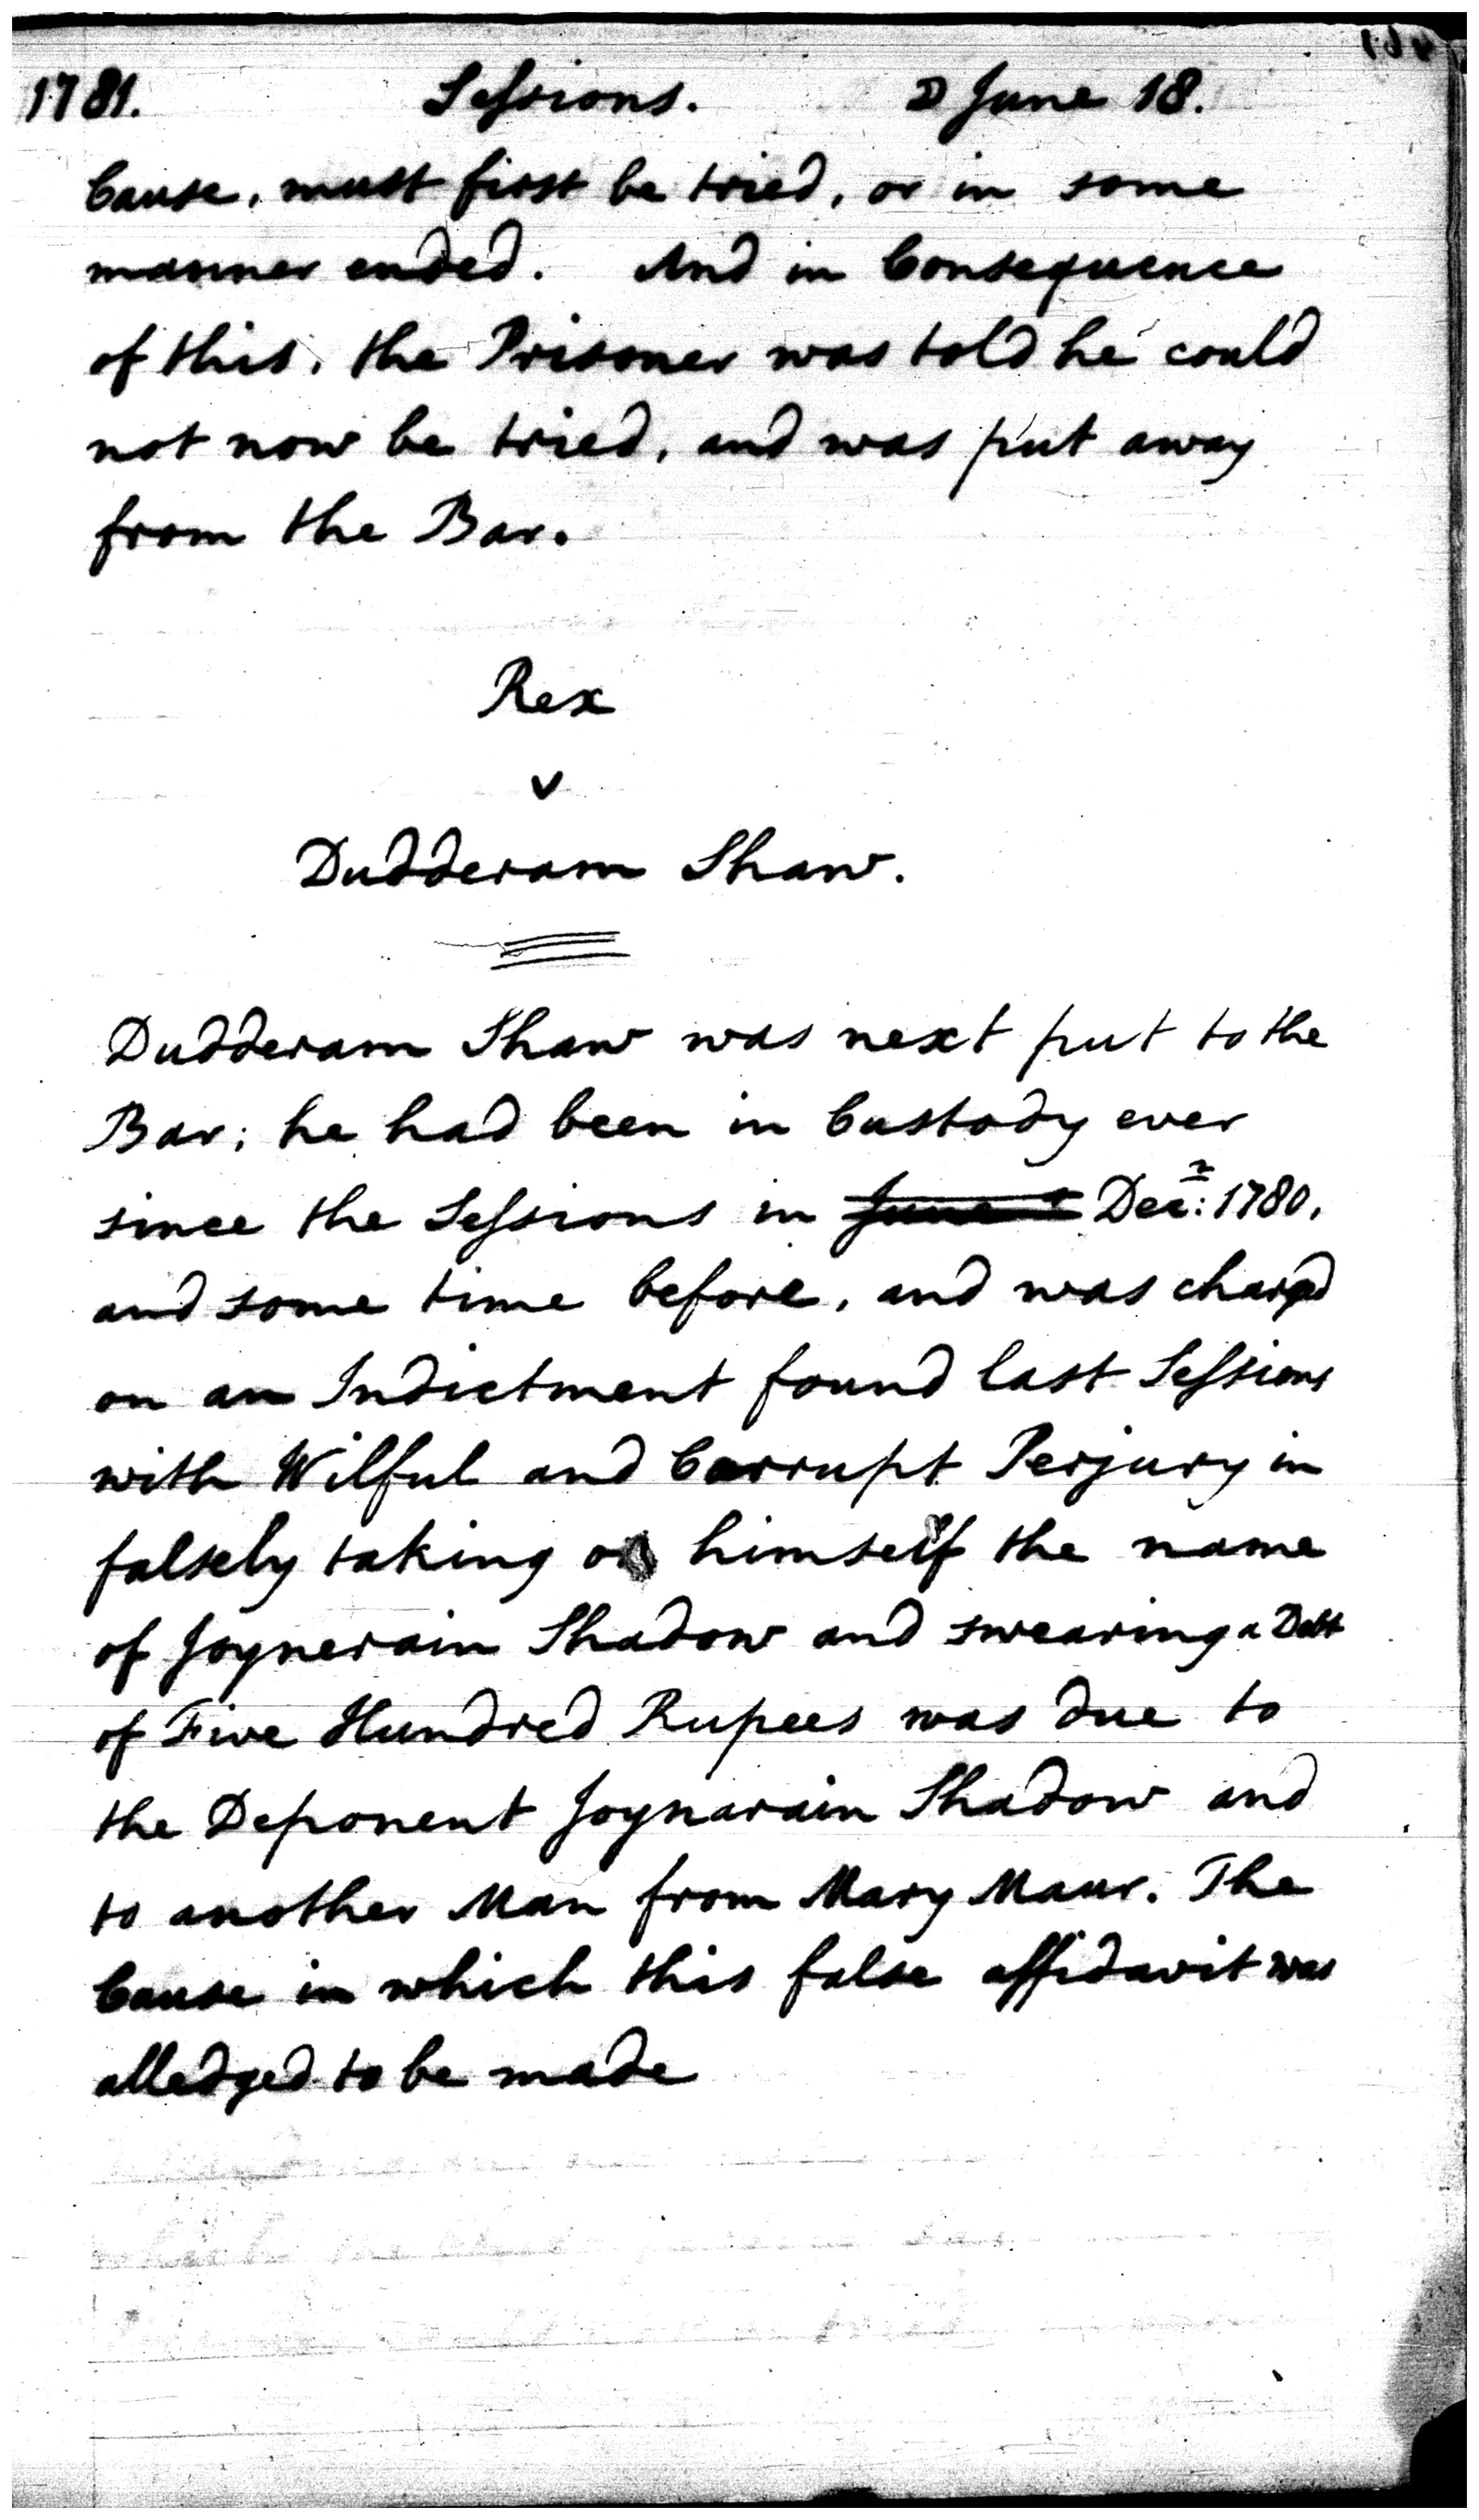 1781. Sessions. ☽ June 18.
Cause, must first be tried, or in some
manner ended. And in Consequence
of this, the Prisoner was told he could
not now be tried, and was put away
from the Bar.
Rex
v
Dudderam Shaw.
Dudderam Shaw was next put to the
Bar; he had been in Custody ever
since the Sessions in June Decr: 1780,
and some time before, and was charged
on an Indictment found last Sessions
with Wilful and Corrupt Perjury in
falsely taking on himself the name
of Joynerain Shadow and swearing a Debt
of Five Hundred Rupees was due to
the Deponent Joynarain Shadow and
to another Man from Mary Maur. The
Cause in which this false affidavit was
alledged to be made